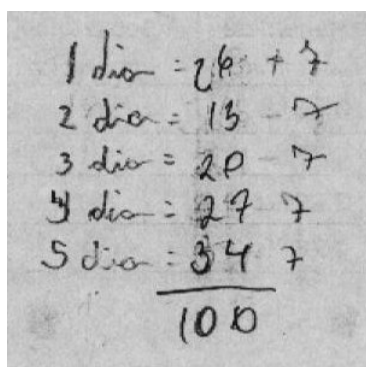 1 dia = 26 + 7
2 dia = 13 - 7
3 dia = 20 - 7
4 dia = 27 7
5 dia = 34 7
100